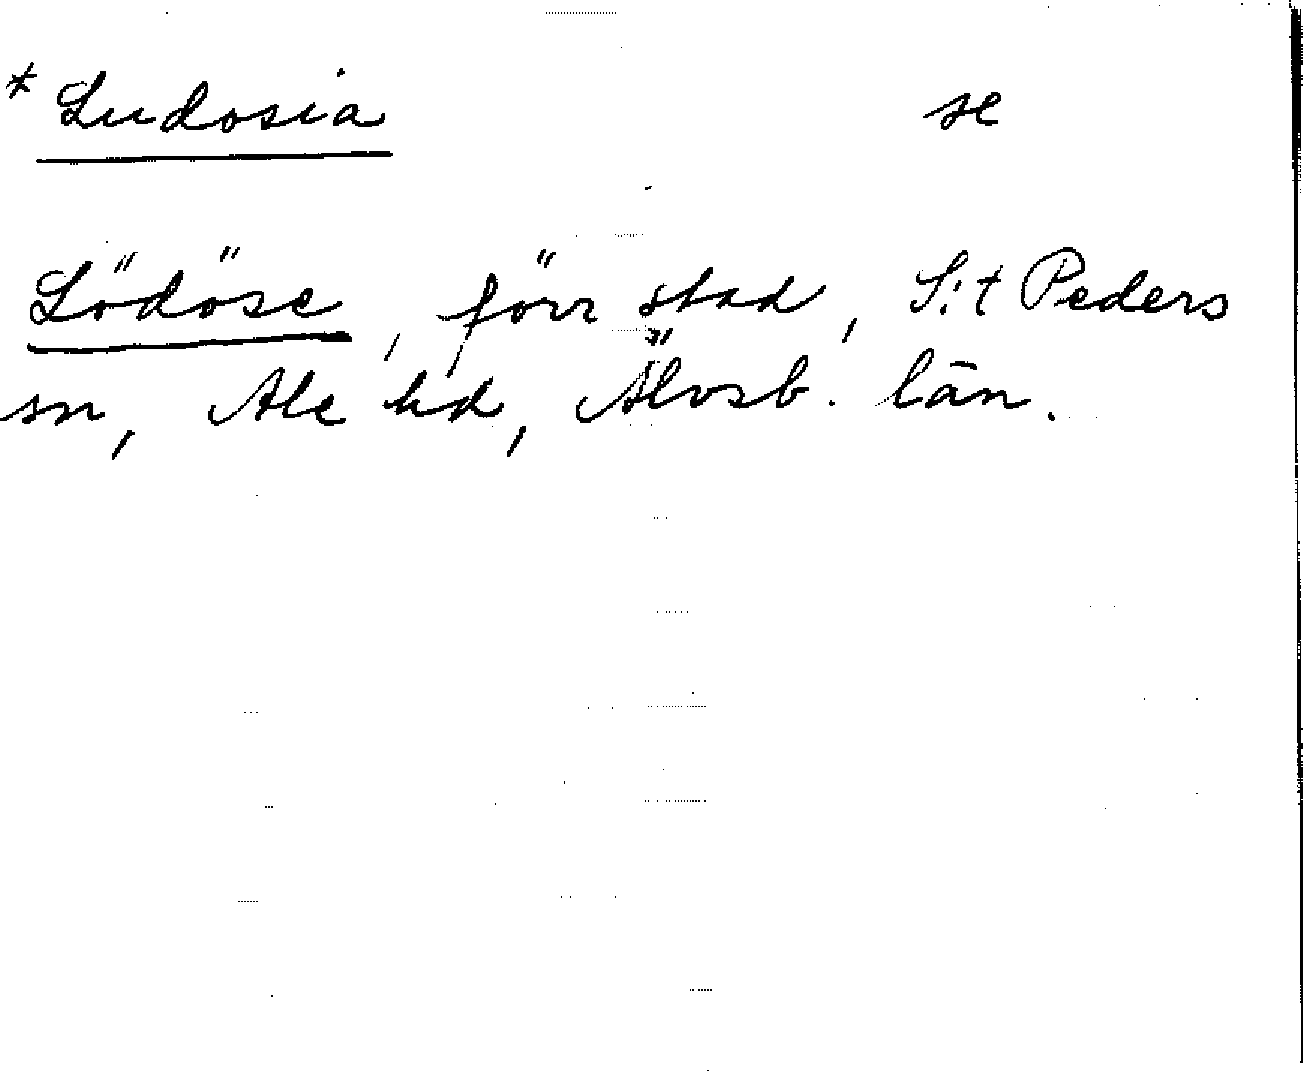 * Ludosia se
Lödöse, förr stad, S:t Peders
sn, Ale hd, Älvsb. län.